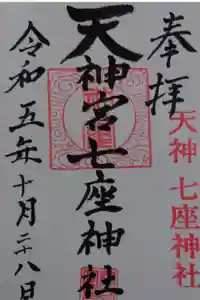 奉拝
天神宮七座神社
令和五年十月二十八日
天神 七座神社